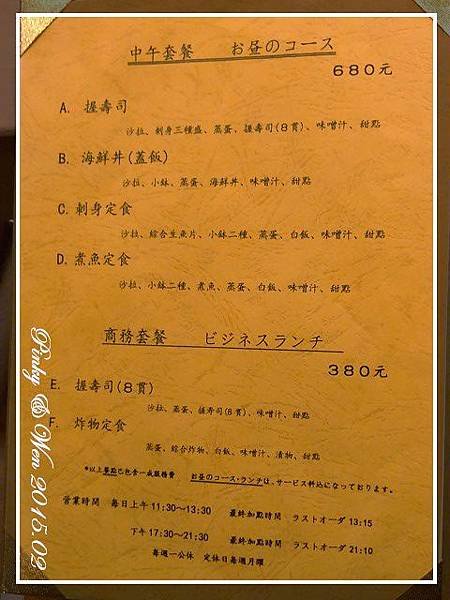 中午套餐 お昼のコース
680元
A. 握壽司
沙拉、刺身三種盛、蒸蛋、握壽司(8貫)、味噌汁、甜點
B. 海鮮丼(蓋飯)
沙拉、小鉢、蒸蛋、海鮮丼、味噌汁、甜點
C. 刺身定食
沙拉、綜合生魚片、小鉢二種、蒸蛋、白飯、味噌汁、甜點
D. 煮魚定食
沙拉、小鉢二種、煮魚、蒸蛋、白飯、味噌汁、甜點
商務套餐 ビジネスランチ
380元
E. 握壽司(8貫)
沙拉、蒸蛋、握壽司(8貫)、味噌汁、甜點
F. 炸物定食
蒸蛋、綜合炸物、白飯、味噌汁、漬物、甜點
*以上餐點已包含一成服務費 お昼のコース・ランチは、サービス料込になっております。
營業時間 每日上午11:30~13:30 最終加點時間 ラストオーダ 13:15
下午17:30~21:30 最終加點時間 ラストオーダ 21:10
每週一公休 定休日每週月曜
Pinky @ Wen 2015.02